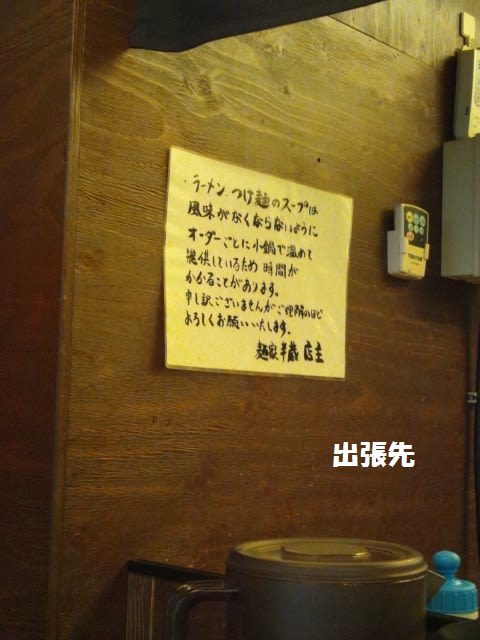 ラーメン、つけ麺のスープは
風味がなくならないように
オーダーごとに小鍋で温めて
提供しているため時間が
かかることがあります。
申し訳ございませんがご理解のほど
よろしくお願いいたします。
麺家 半蔵 店主
出張先